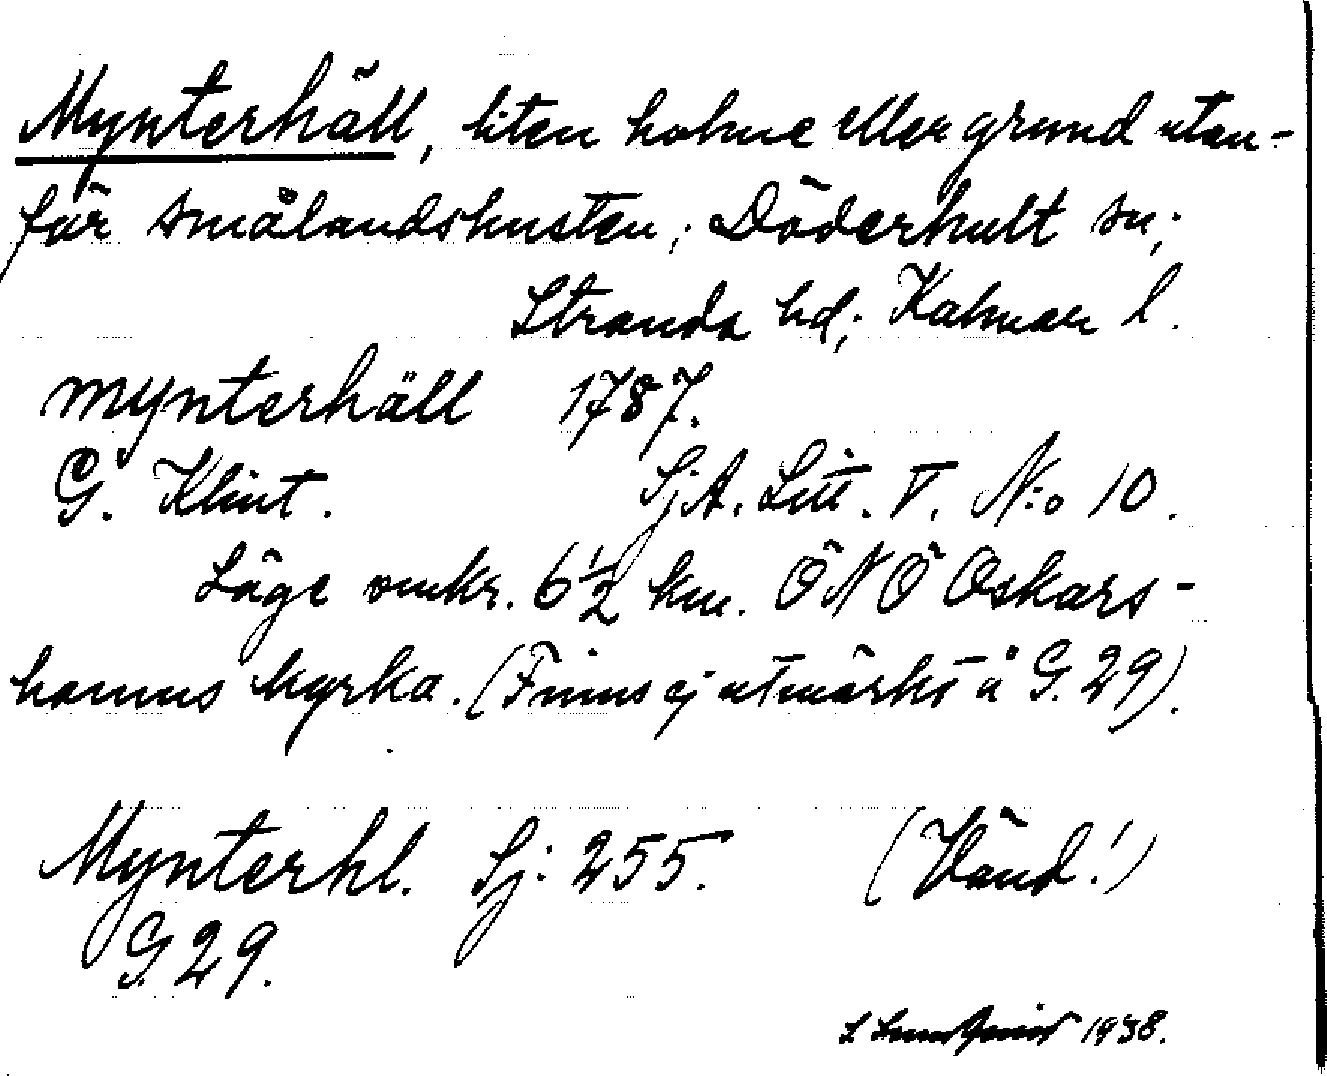 Mynterhäll, liten holme eller grund utan-
för smålandskusten; Döderhult sn;
Stranda hd; Kalmar l.
mynterhäll 1787.
G. Klint. Sj.A. Litt. V. N:o 10.
Läge omkr. 6 1/2 km. ÖNÖ Oskars-
hamns kyrka. (Finns ej utmärkt å G. 29).
Mynterhl. Sj: 255. (Vänd!)
G. 29.
1938.